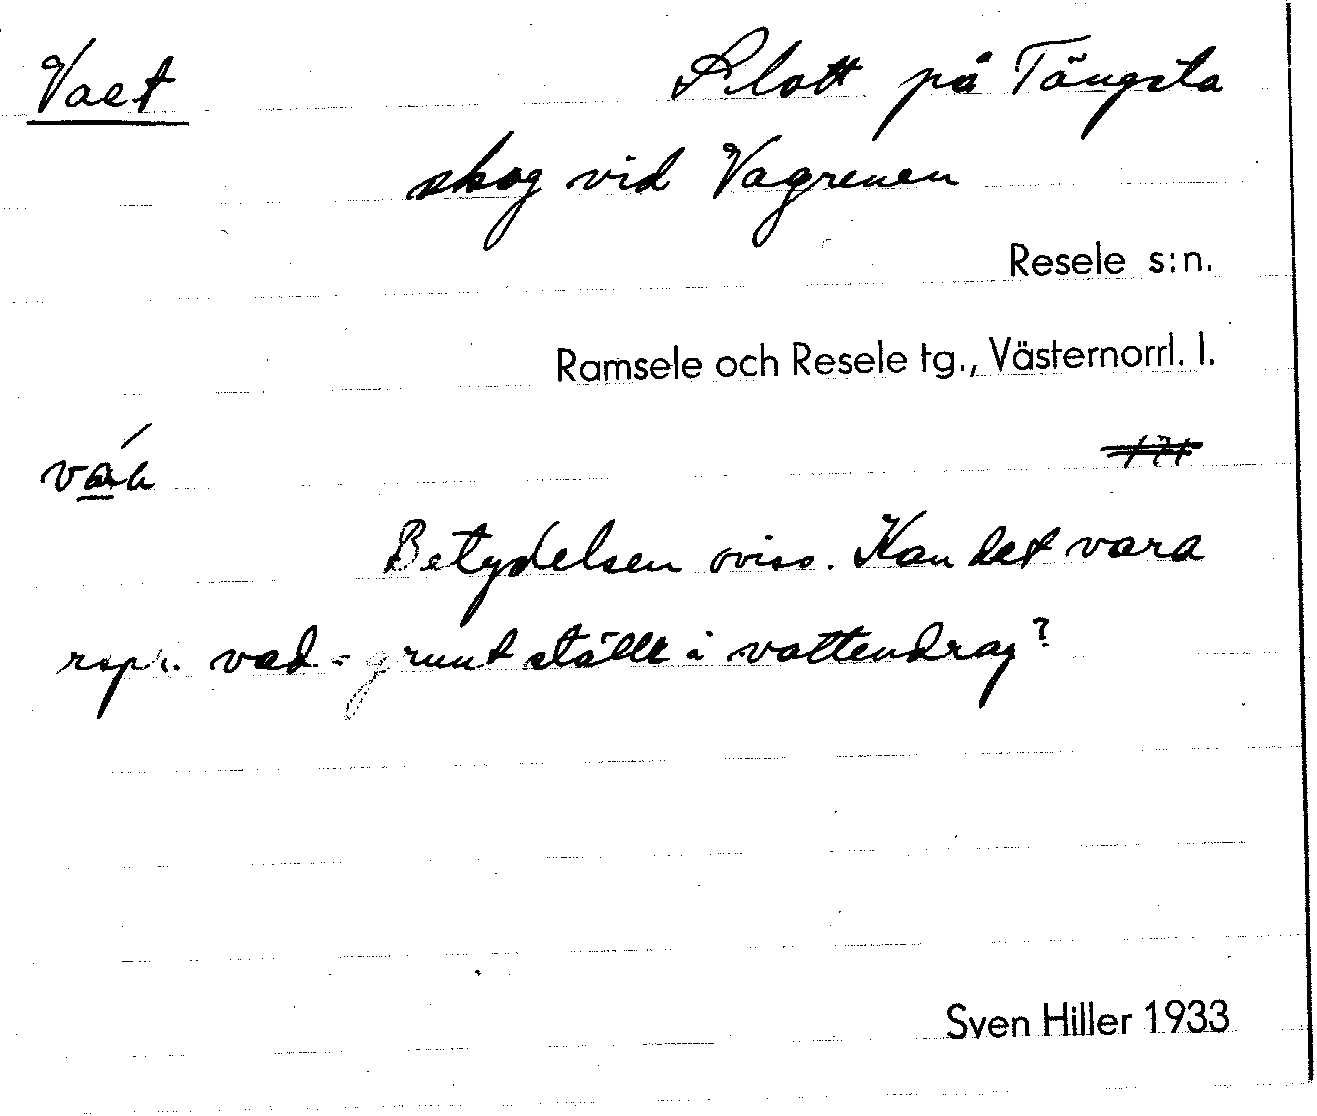 Vaet Slott på Tängsta
skog vid Vagrenen
Resele s:n.
Ramsele och Resele tg., Västernorrl. l.
Betydelsen oviss. Kan det vara
repr. vad = grunt ställe i vattendrag?
Sven Hiller 1933